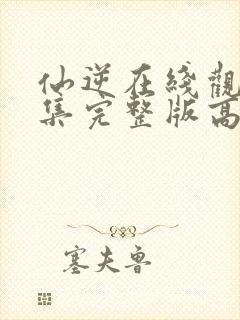 仙逆在綫觀
集完整版高
塞夫魯